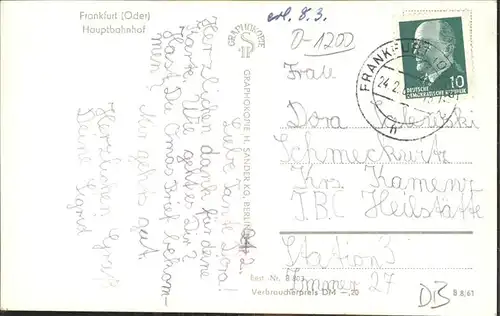 Frankfurt (Oder)
Hauptbahnhof
erl. 8.3.
D-1200
GRAPHOKOPIE
GRAPHOKOPIE H. SANDER KG. BERLIN
Liebe Tante Dora!
Herzlichen Dank für deine
Karte. Wie geht es Dir?
Hast Du Omas Brief bekom-
men? Mir geht es gut.
Herzlichen Gruß
Deine Sigrid
FRANKFURT (O
24.2.
h
10
DEUTSCHE
DEMOKRATISCHE REPUBLIK
Frau
Dora
Schmeckwitz
Krs. Kamenz
TBC Heilstätte
Station 3
Zimmer 27
Best.-Nr. B 803
Verbraucherpreis DM —,20
DB
B 8/61